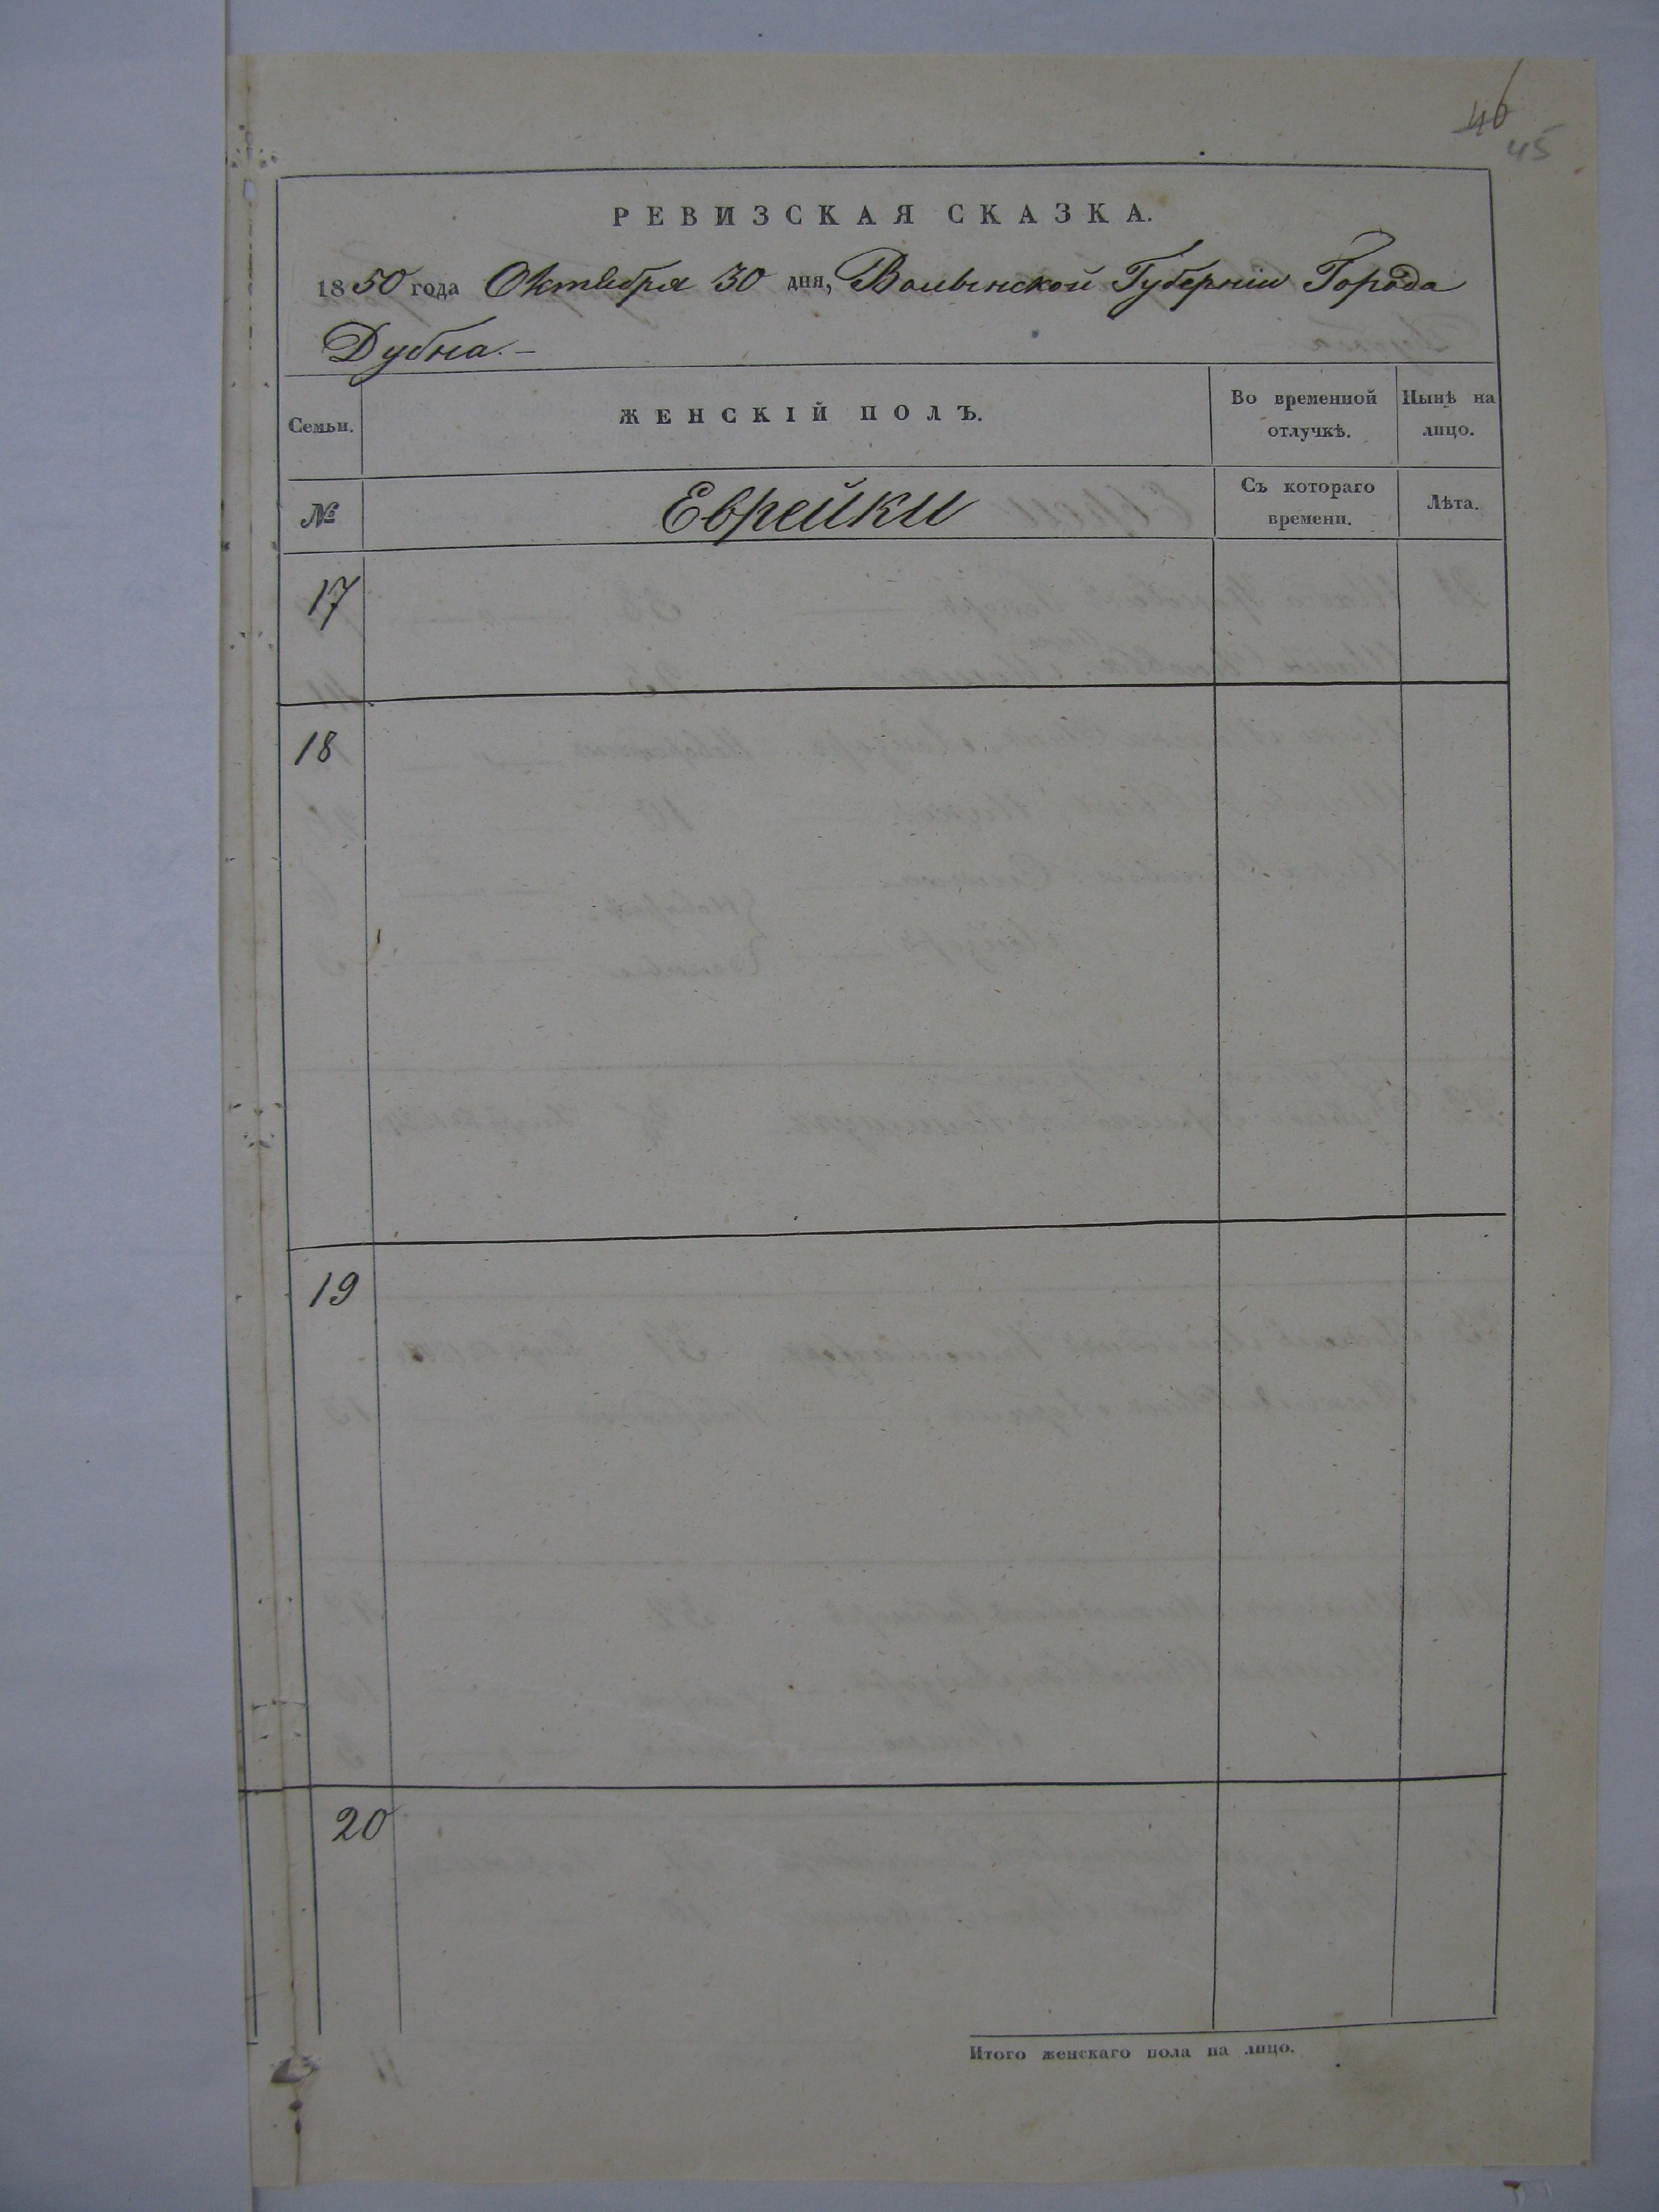 46
45
РЕВИЗСКАЯ СКАЗКА.
1850 года Октября 30 дня, Волынской Губерніи Города
Дубна.-
Семьи.
ЖЕНСКІЙ ПОЛЪ.
Во временной
отлучкѣ.
Нынѣ на
лицо.
№
Еврейки
Съ котораго
времени.
Лѣта.
17
18
19
20
Итого женскаго пола на лицо.